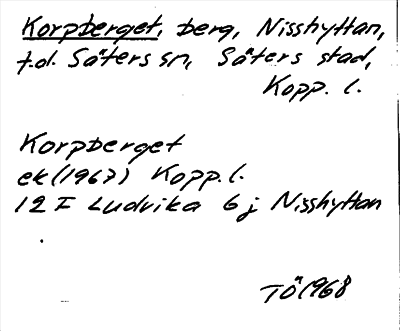 Korpberget, berg, Nisshyttan,
f.d. Säters sn, Säters stad,
Kopp. l.
Korpberget
ek (1967) Kopp. l.
12 F Ludvika 6 j Nisshyttan
TÖ 1968